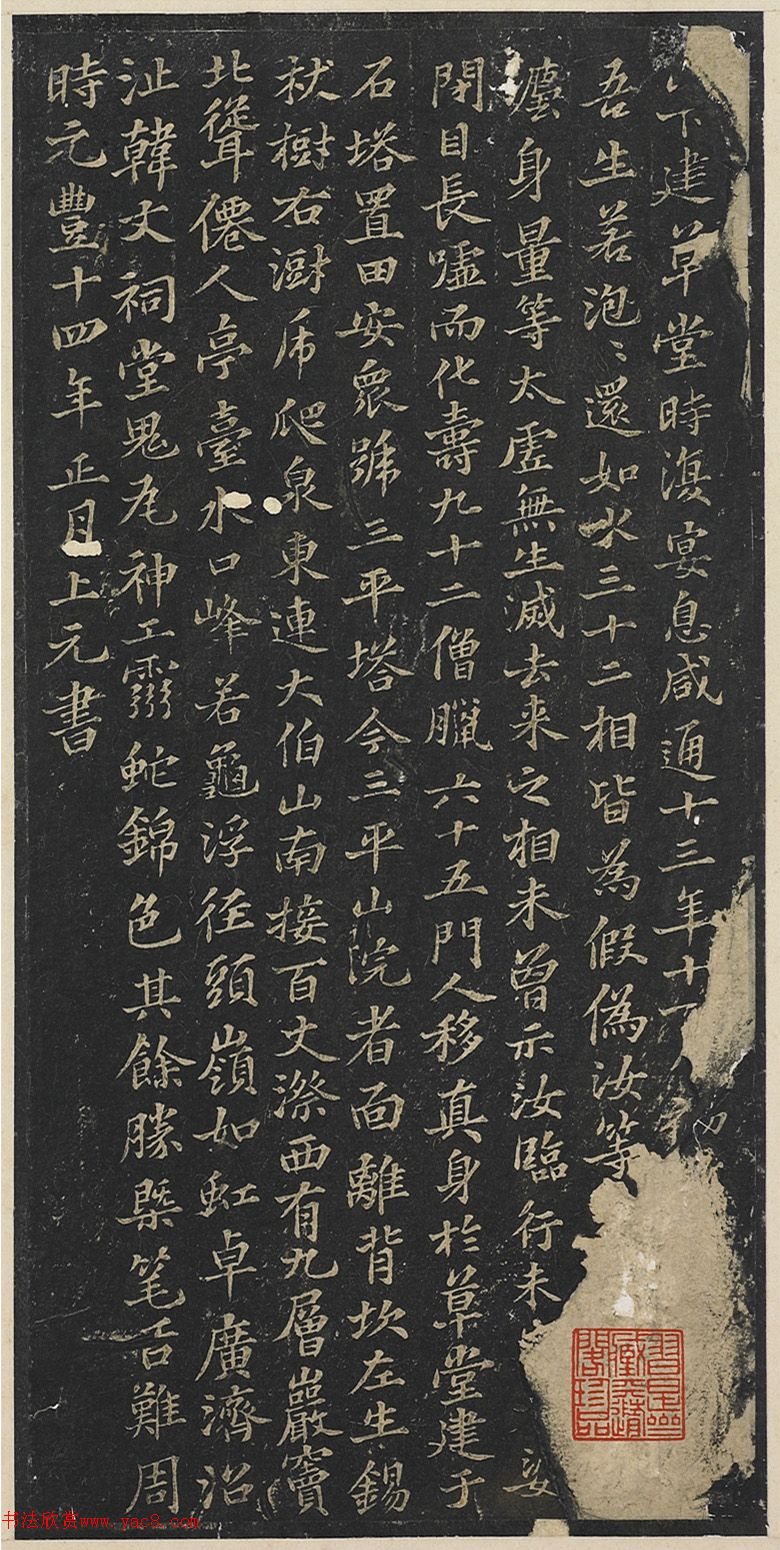 下建草堂時復宴息咸通十三年十一
吾生若泡〻還如水三十二相皆為假偽汝等
身量等太虛無生滅去來之相未曾示汝臨行未
閉目長噓而化壽九十二僧臘六十五門人移真身於草堂建于
石塔置田安眾號三平塔今三平山院者面離背坎左生錫
杖樹右澍虎爬泉東連大伯山南接百丈漈西有九層巖竇
北聳僊人亭臺水口峰若龜浮徑頭嶺如虹卓廣濟沿
沚韓文祠堂鬼神工靈蛇錦色其餘勝槩筆舌難周
時元豐十四年正月上元書
书法欣赏www.yac8.com